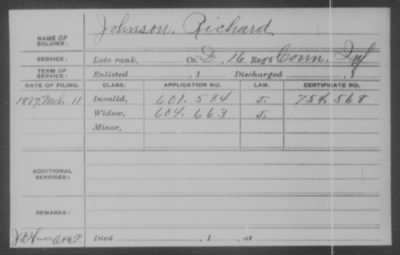 NAME OF SOLDIER: Johnson, Richard
SERVICE: Late rank, Co. D, 16 Reg't Conn. Inf
TERM OF SERVICE: Enlisted , 1 Discharged , 1
DATE OF FILING. CLASS. APPLICATION NO. LAW. CERTIFICATE NO.
1887, Mch. 11 Invalid, 601.584 J. 754.568
Widow, 604.663 J.
Minor,
ADDITIONAL SERVICES:
REMARKS:
Died , 1 , at